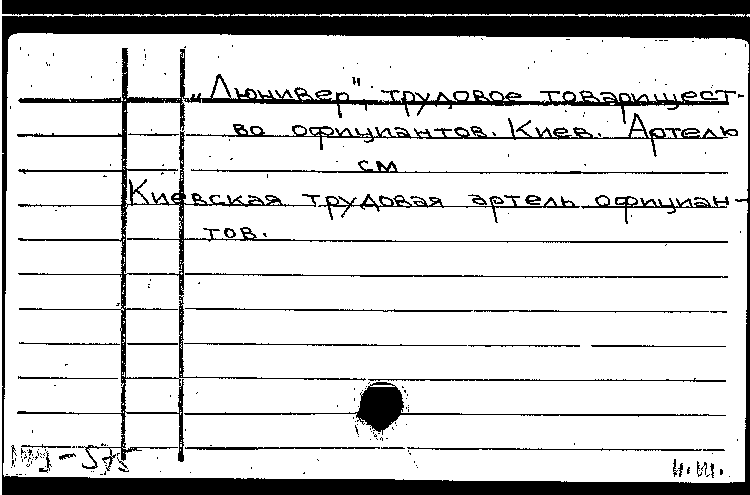 „Люнивер", трудовое товарищест-
во официантов. Киев. Артель
см
Киевская трудовая артель официан-
тов.
н.ш.